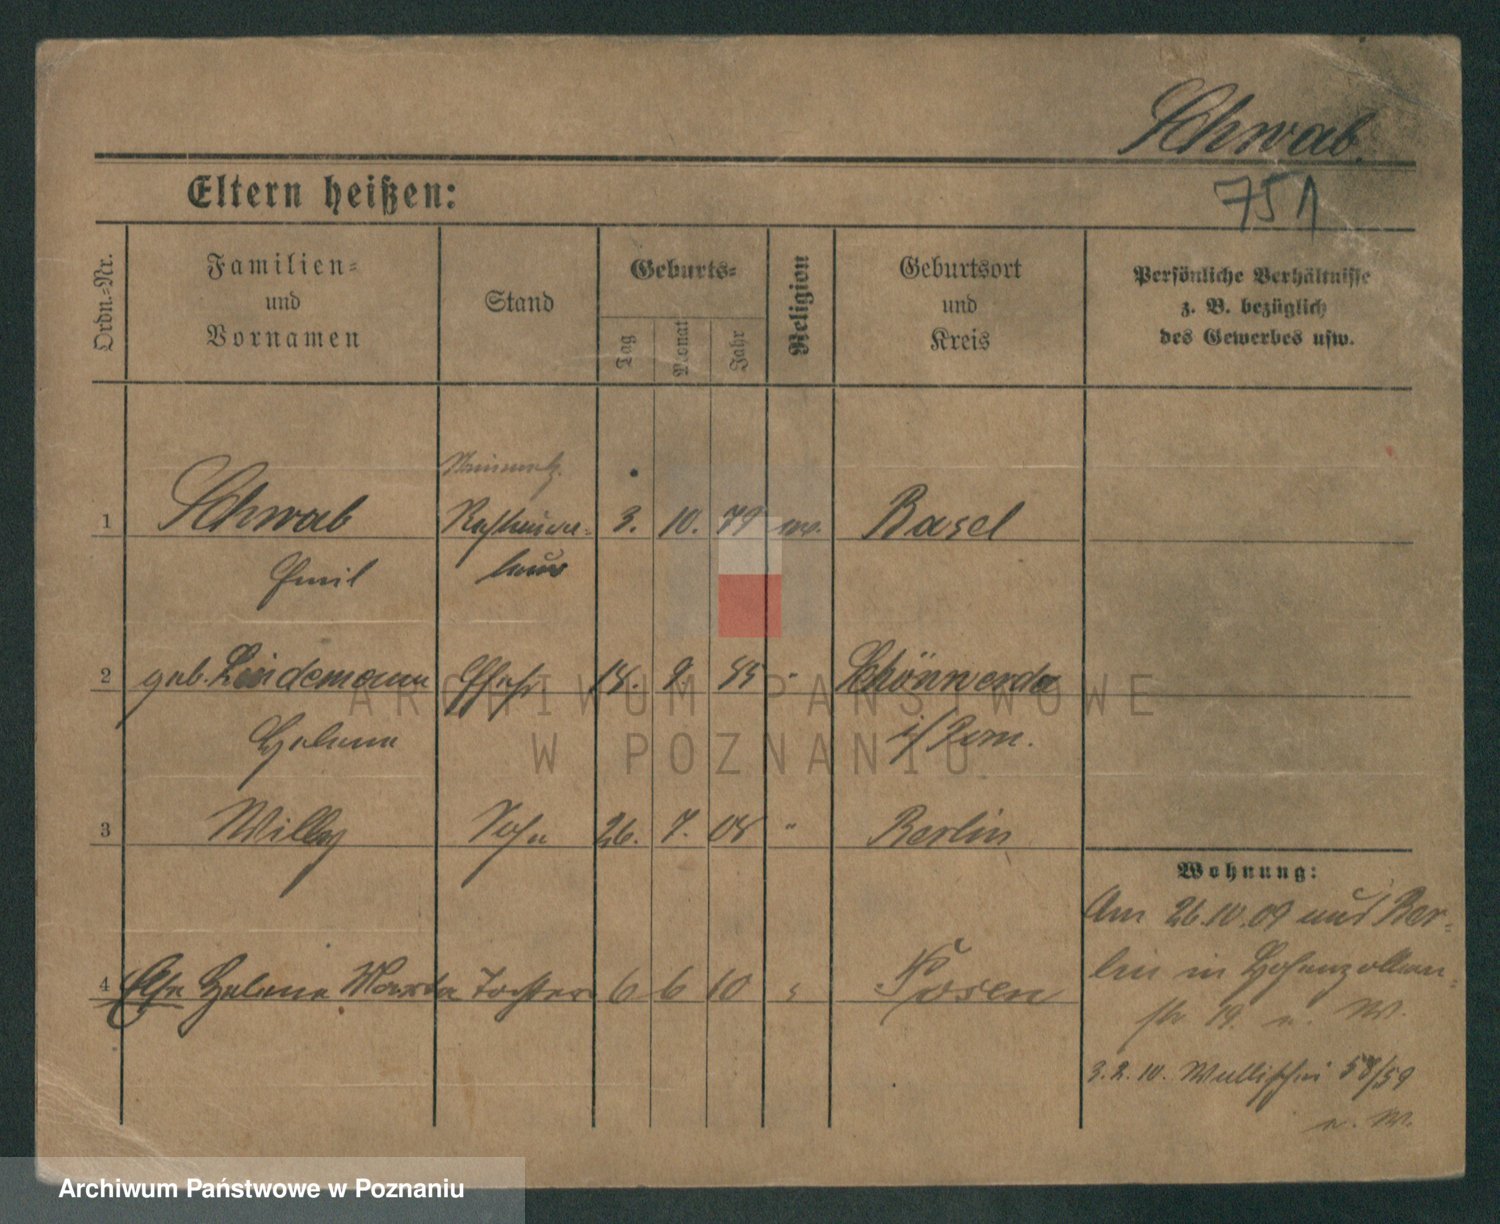 Schwab.
Eltern heißen:
751
Ordn.-Nr.
Familien-
und
Vornamen
Stand
Geburts-
Tag
Monat
Jahr
Religion
Geburtsort
und
Kreis
Persönliche Verhältnisse
z. B. bezüglich
des Gewerbes usw.
1 Schwab 3. 10. 79 Basel
Emil
2 geb. Lindemann Ehefr 18. 9. " Schönwerda
Helene i/Pom.
3 Willy Sohn 26. 7. 08 " Berlin
Wohnung:
Am 26.10.09 aus Ber-
lin in Hohenzollern-
str 19. n. W.
4 Else Helene Marta Tochter 6 6 10 " Posen
3.2.10. 58/59
n. W.
ARCHIWUM PAŃSTWOWE
W POZNANIU
Archiwum Państwowe w Poznaniu